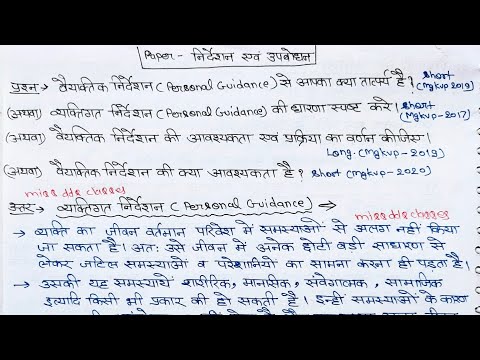 Paper - निर्देशन एवं उपबोधन
प्रश्न → वैयक्तिक निर्देशन (Personal Guidance) से आपका क्या तात्पर्य है? short (Mgkvp 2019)
(अथवा) व्यक्तिगत निर्देशन (Personal Guidance) की धारणा स्पष्ट करे। short (Mgkvp-2017)
(अथवा) वैयक्तिक निर्देशन की आवश्यकता एवं प्रक्रिया का वर्णन कीजिए।
Long. (Mgkvp-2019)
(अथवा) वैयक्तिक निर्देशन की क्या आवश्यकता है? short (Mgkvp-2020)
miss ddr classes
उत्तर → व्यक्तिगत निर्देशन (Personal Guidance) ⇒
miss ddr classes
→ व्यक्ति का जीवन वर्तमान परिवेश में समस्याओं से अलग नही किया
जा सकता है। अतः उसे जीवन में अनेक छोटी बड़ी साधारण से
लेकर जटिल समस्याओं व परेशानियों का सामना करना ही पड़ता है।
→ उसकी यह समस्यायें शारीरिक, मानसिक, संवेगात्मक, सामाजिक
इत्यादि किसी भी प्रकार की हो सकती है। इन्हीं समस्याओं के कारण